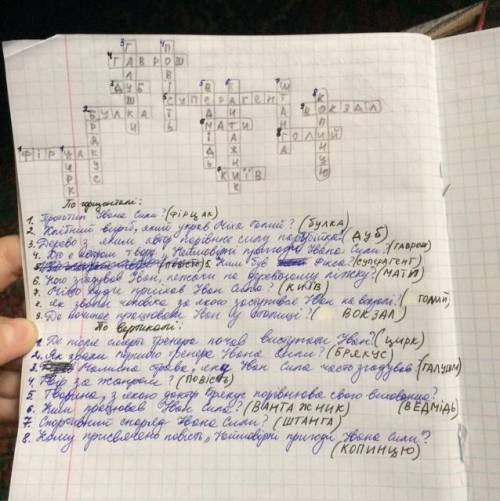 ГАВРОШ
ДУБ
БУЛКА
СУПЕРАГЕНТ
ВОКЗАЛ
МАТИ
ГОЛИЙ
ФІРЦАК
КИЇВ
По горизонталі:
1. Прототип Івана Сили? (ФІРЦАК)
2. Хлібний виріб, який украв Міха Голий? (БУЛКА)
3. Дерево з яким автор порівнює силу парубійка? (ДУБ)
4. твору „Неймовірні пригоди Івана Сили". (ГАВРОШ)
5. Ким був Джеа? (СУПЕРАГЕНТ)
6. Кого згадував Іван, лежачи на дерев'яному ліжку? (МАТИ)
7. Місто куди приїхав Іван Сила? (КИЇВ)
8. Як звали чоловіка за якого заступився Іван на вокзалі? (ГОЛИЙ)
9. Де починає працювати Іван у столиці? (ВОКЗАЛ)
По вертикалі:
1. Де після смерті тренера почав виступати Іван? (ЦИРК)
2. Як звали першого тренера Івана Сили? (БРЯКУС)
3. страва, яку Іван Сила часто згадував (ГАЛУШКИ)
4. Твір за жанром? (ПОВІСТЬ)
5. Тварина, з якою доктор Брякус порівнював свого вихованця? (ВЕДМІДЬ)
6. Ким працював Іван Сила? (ВАНТАЖНИК)
7. Спортивний снаряд Івана Сили? (ШТАНГА)
8. Кому присвячено повість „Неймовірні пригоди Івана Сили"? (КОПИНЦЮ)